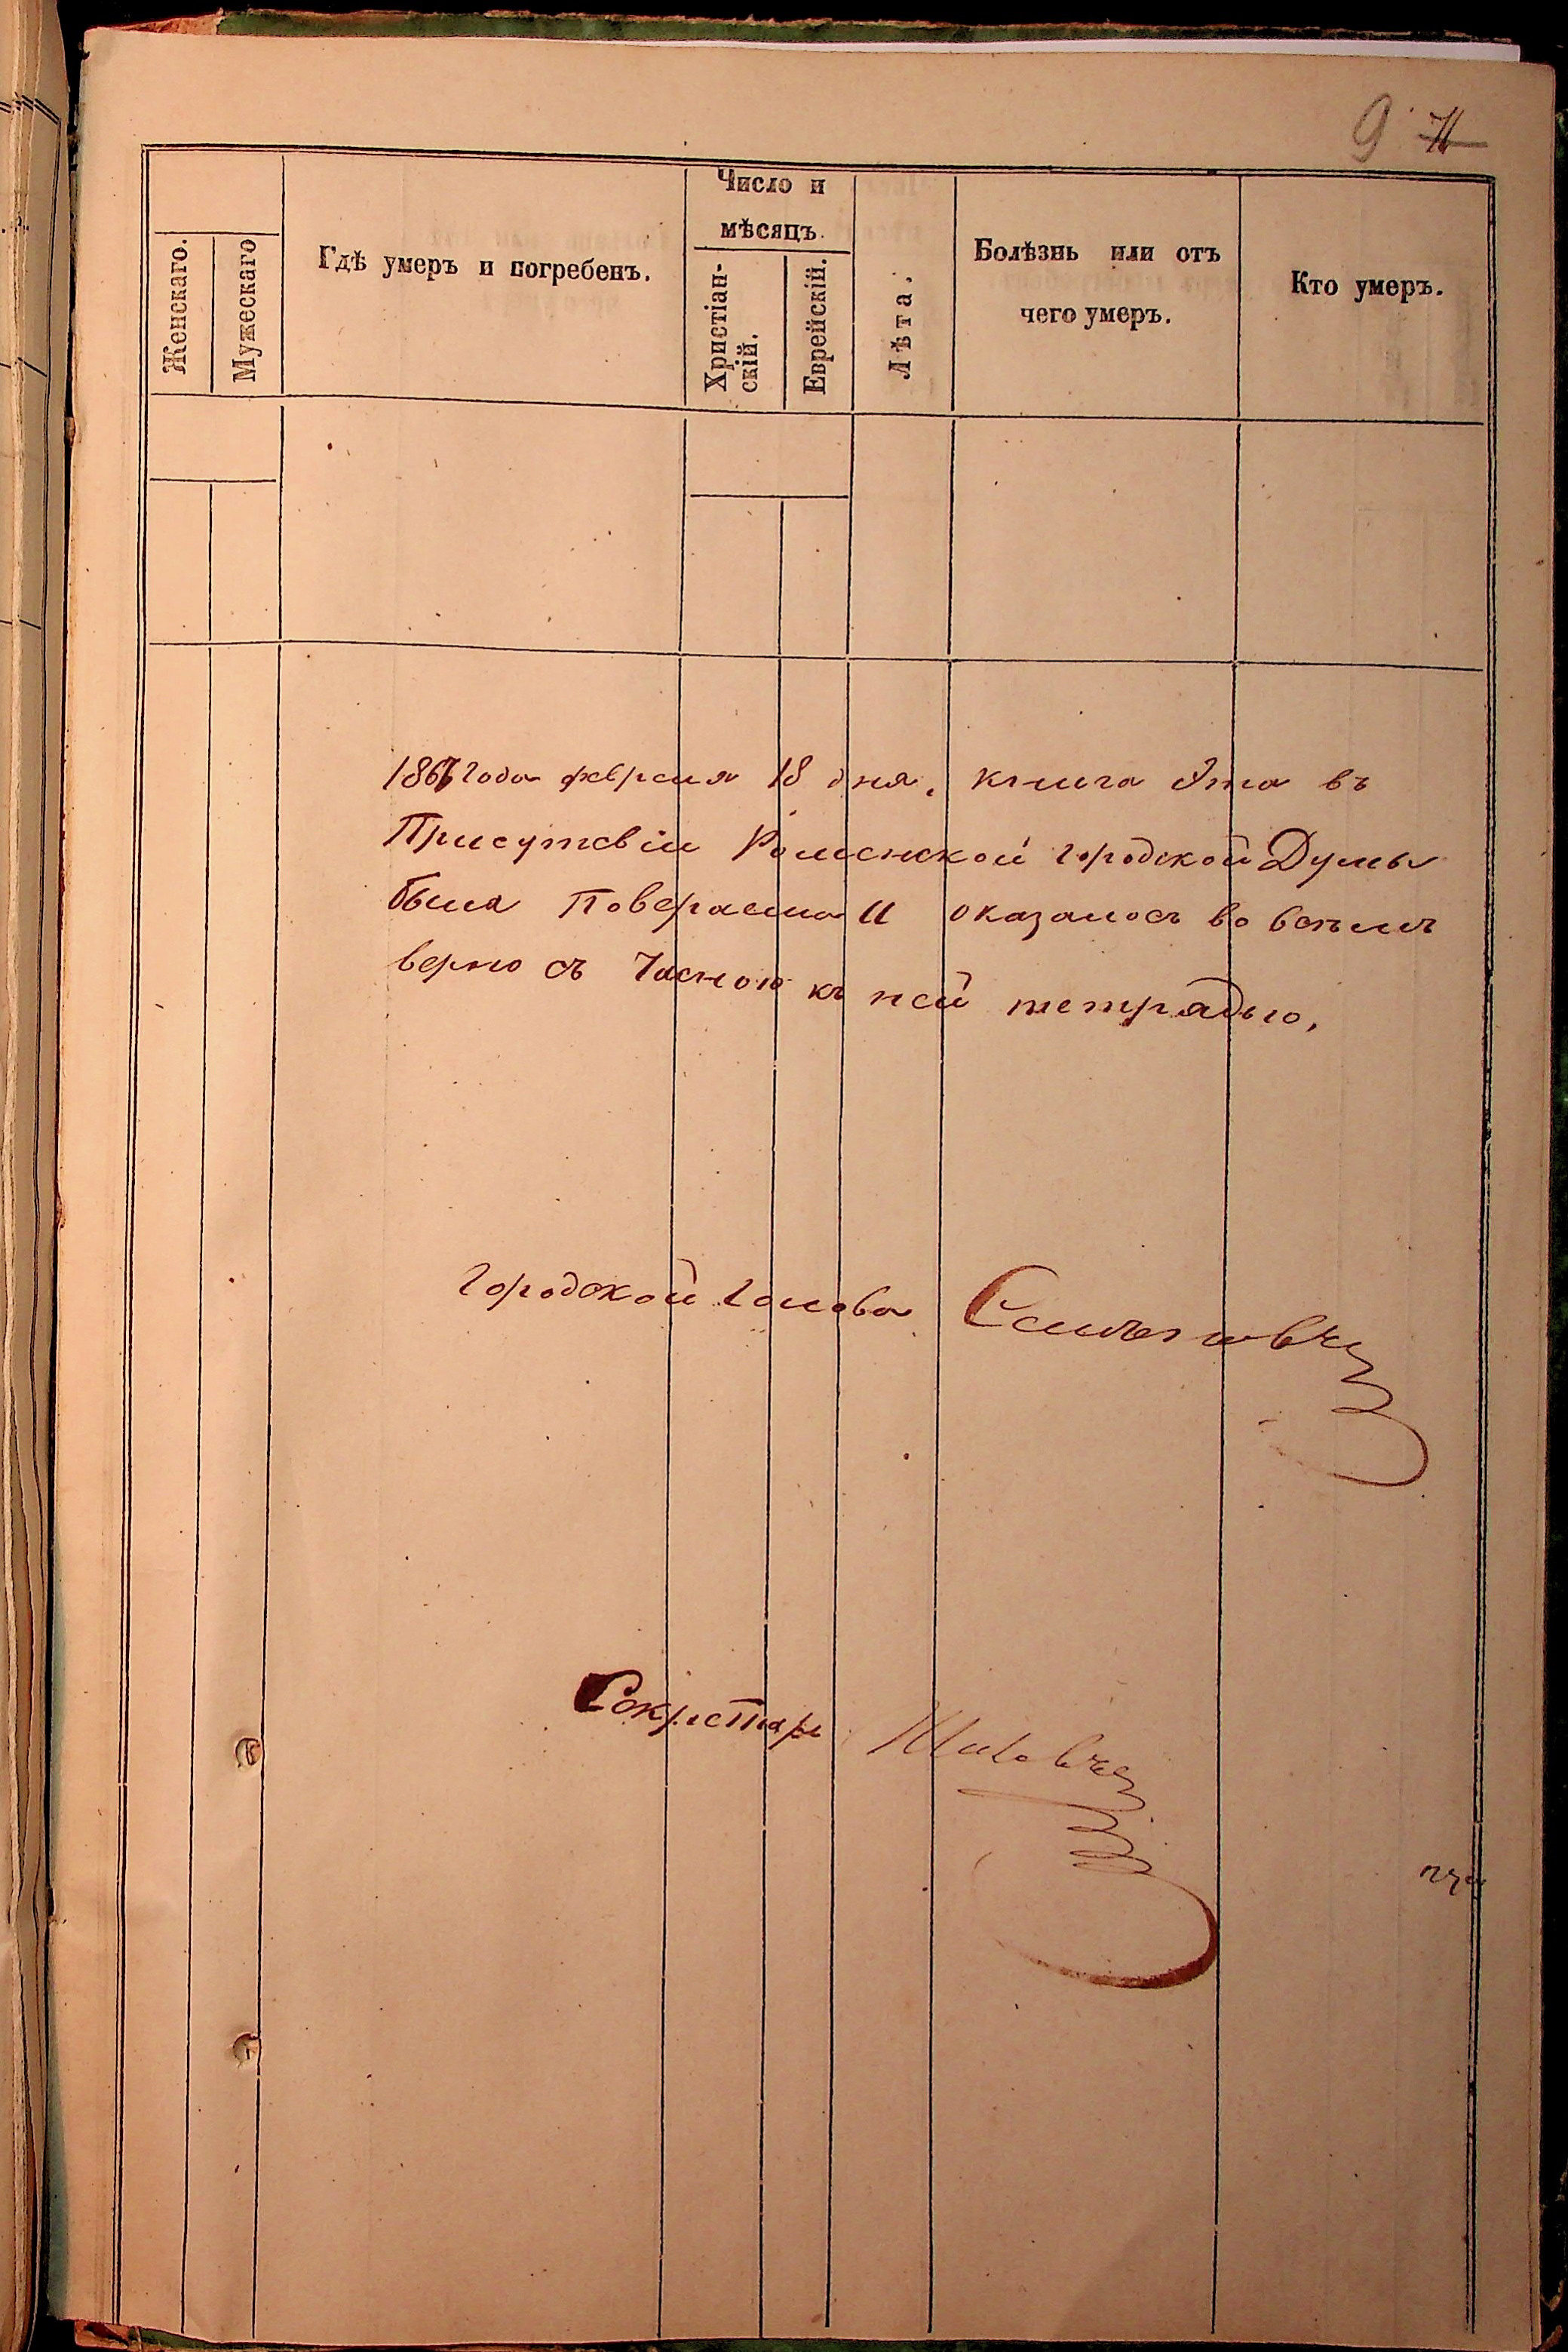 9
Число и
мѣсяцъ.
Женскаго.
Мужескаго
Гдѣ умеръ и погребенъ.
Христіан-
скій.
Еврейскій.
Лѣта.
Болѣзнь или отъ
чего умеръ.
Кто умеръ.
года февраля 18 дня, книга эта въ
Присутсвіи Роменской городской Думы
была поверяема и оказалось во всѣмъ
верно съ Часною къ ней тетрадью,
Городской голова
Секретарь